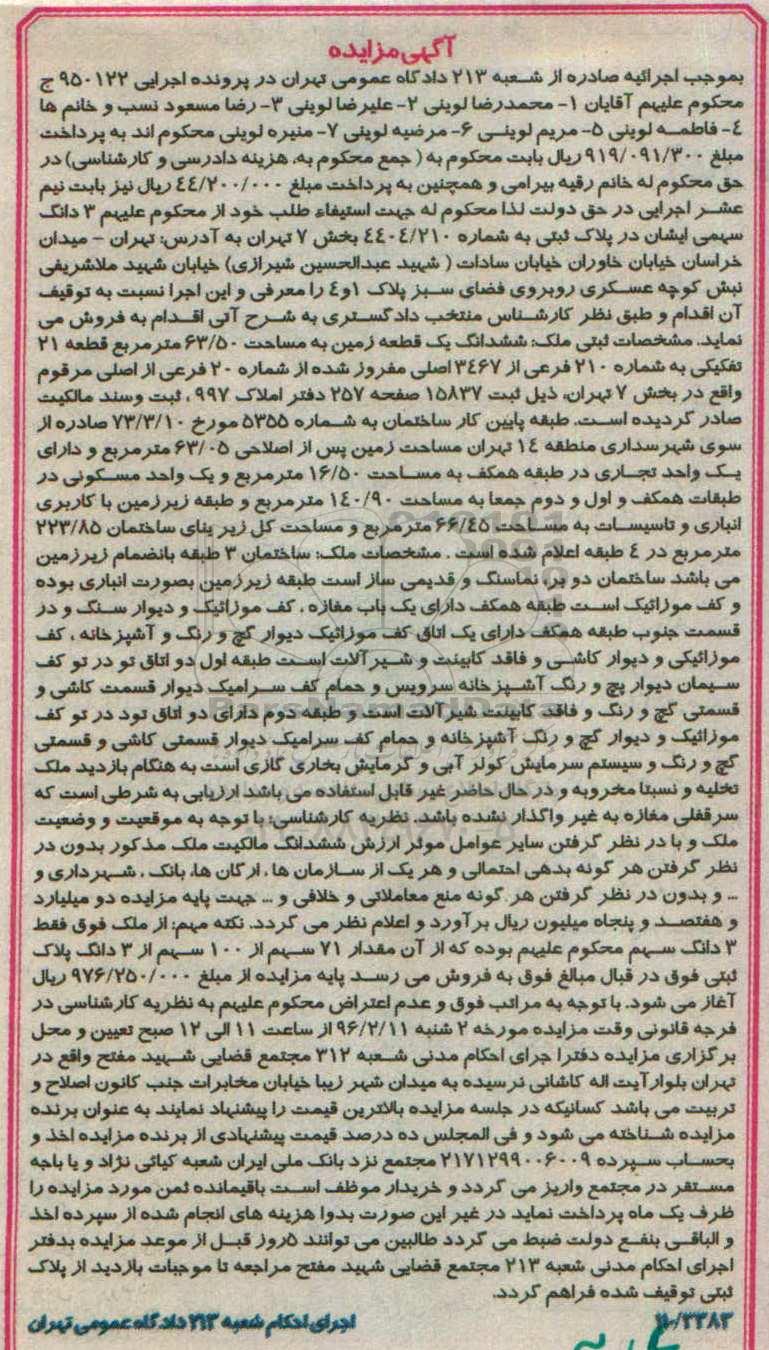 آگهی مزایده
بموجب اجرائیه صادره از شعبه ۲۱۳ دادگاه عمومی تهران در پرونده اجرایی ۹۵۰۱۲۲ ج
محکوم علیهم آقایان ۱- محمدرضا لوینی ۲- علیرضا لوینی ۳- رضا مسعود نسب و خانم ها
٤- فاطمه لوینی ۵- مریم لوینی ۶- مرضیه لوینی ۷- منیره لوینی محکوم اند به پرداخت
مبلغ ۹۱۹/۰۹۱/۳۰۰ ریال بابت محکوم به ( جمع محکوم به، هزینه دادرسی و کارشناسی) در
حق محکوم له خانم رقیه بیرامی و همچنین به پرداخت مبلغ ٤٤/۲۰۰/۰۰۰ ریال نیز بابت نیم
عشر اجرایی در حق دولت لذا محکوم له جهت استیفاء طلب خود از محکوم علیهم ۳ دانگ
سهمی ایشان در پلاک ثبتی به شماره ٤٤۰٤/۲۱۰ بخش ۷ تهران به آدرس: تهران - میدان
خراسان خیابان خاوران خیابان سادات ( شهید عبدالحسین شیرازی) خیابان شهید ملاشریفی
نبش کوچه عسکری روبروی فضای سبز پلاک ۱و٤ را معرفی و این اجرا نسبت به توقیف
آن اقدام و طبق نظر کارشناس منتخب دادگستری به شرح آتی اقدام به فروش می
نماید. مشخصات ثبتی ملک: ششدانگ یک قطعه زمین به مساحت ۶۳/۵۰ مترمربع قطعه ۲۱
تفکیکی به شماره ۲۱۰ فرعی از ۳٤۶۷ اصلی مفروز شده از شماره ۲۰ فرعی از اصلی مرقوم
واقع در بخش ۷ تهران، ذیل ثبت ۱۵۸۳۷ صفحه ۲۵۷ دفتر املاک ۹۹۷ ، ثبت وسند مالکیت
صادر گردیده است. طبقه پایین کار ساختمان به شماره ۵۳۵۵ مورخ ۷۳/۳/۱۰ صادره از
سوی شهرسداری منطقه ۱٤ تهران مساحت زمین پس از اصلاحی ۶۳/۰۵ مترمربع و دارای
یک واحد تجاری در طبقه همکف به مساحت ۱۶/۵۰ مترمربع و یک واحد مسکونی در
طبقات همکف و اول و دوم جمعا به مساحت ۱٤۰/۹۰ مترمربع و طبقه زیرزمین با کاربری
انباری و تاسیسات به مساحت ۶۶/٤۵ مترمربع و مساحت کل زیر بنای ساختمان ۲۲۳/۸۵
مترمربع در ٤ طبقه اعلام شده است . مشخصات ملک: ساختمان ۳ طبقه بانضمام زیرزمین
می باشد ساختمان دو بر، نماسنگ و قدیمی ساز است طبقه زیرزمین بصورت انباری بوده
و کف موزائیک است طبقه همکف دارای یک باب مغازه ، کف موزائیک و دیوار سنگ و در
قسمت جنوب طبقه همکف دارای یک اتاق کف موزائیک دیوار گچ و رنگ و آشپزخانه ، کف
موزائیکی و دیوار کاشی و فاقد کابینت و شیرآلات است طبقه اول دو اتاق تو در تو کف
سیمان دیوار پچ و رنگ آشپزخانه سرویس و حمام کف سرامیک دیوار قسمت کاشی و
قسمتی گچ و رنگ و فاقد کابینت شیرآلات است و طبقه دوم دارای دو اتاق تود در تو کف
موزائیک و دیوار گچ و رنگ آشپزخانه و حمام کف سرامیک دیوار قسمتی کاشی و قسمتی
گچ و رنگ و سیستم سرمایش کولر آبی و گرمایش بخاری گازی است به هنگام بازدید ملک
تخلیه و نسبتا مخروبه و در حال حاضر غیر قابل استفاده می باشد ارزیابی به شرطی است که
سرقفلی مغازه به غیر واگذار نشده باشد. نظریه کارشناسی: با توجه به موقعیت و وضعیت
ملک و با در نظر گرفتن سایر عوامل موثر ارزش ششدانگ مالکیت ملک مذکور بدون در
نظر گرفتن هر گونه بدهی احتمالی و هر یک از سازمان ها ، ارگان ها، بانک ، شهرداری و
... و بدون در نظر گرفتن هر گونه منع معاملاتی و خلافی و ... جهت پایه مزایده دو میلیارد
و هفتصد و پنجاه میلیون ریال برآورد و اعلام نظر می گردد. نکته مهم: از ملک فوق فقط
۳ دانگ سهم محکوم علیهم بوده که از آن مقدار ۷۱ سهم از ۱۰۰ سهم از ۳ دانگ پلاک
ثبتی فوق در قبال مبالغ فوق به فروش می رسد پایه مزایده از مبلغ ۹۷۶/۲۵۰/۰۰۰ ریال
آغاز می شود. با توجه به مراتب فوق و عدم اعتراض محکوم علیهم به نظریه کارشناسی در
فرجه قانونی وقت مزایده مورخه ۲ شنبه ۹۶/۲/۱۱ از ساعت ۱۱ الی ۱۲ صبح تعیین و محل
برگزاری مزایده دفترا جرای احکام مدنی شعبه ۳۱۲ مجتمع قضایی شهید مفتح واقع در
تهران بلوارآیت اله کاشانی نرسیده به میدان شهر زیبا خیابان مخابرات جنب کانون اصلاح و
تربیت می باشد کسانیکه در جلسه مزایده بالاترین قیمت را پیشنهاد نمایند به عنوان برنده
مزایده شناخته می شود و فی المجلس ده درصد قیمت پیشنهادی از برنده مزایده اخذ و
بحساب سپرده ۲۱۷۱۲۹۹۰۰۶۰۰۹ مجتمع نزد بانک ملی ایران شعبه کیائی نژاد و یا باجه
مستقر در مجتمع واریز می گردد و خریدار موظف است باقیمانده ثمن مورد مزایده را
ظرف یک ماه پرداخت نماید در غیر این صورت بدوا هزینه های انجام شده از سپرده اخذ
و الباقی بنفع دولت ضبط می گردد طالبین می توانند ۵روز قبل از موعد مزایده بدفتر
اجرای احکام مدنی شعبه ۲۱۳ مجتمع قضایی شهید مفتح مراجعه تا موجبات بازدید از پلاک
ثبتی توقیف شده فراهم گردد.
۱۱۰/۳۳۸۳ اجرای احکام شعبه ۲۱۳ دادگاه عمومی تهران